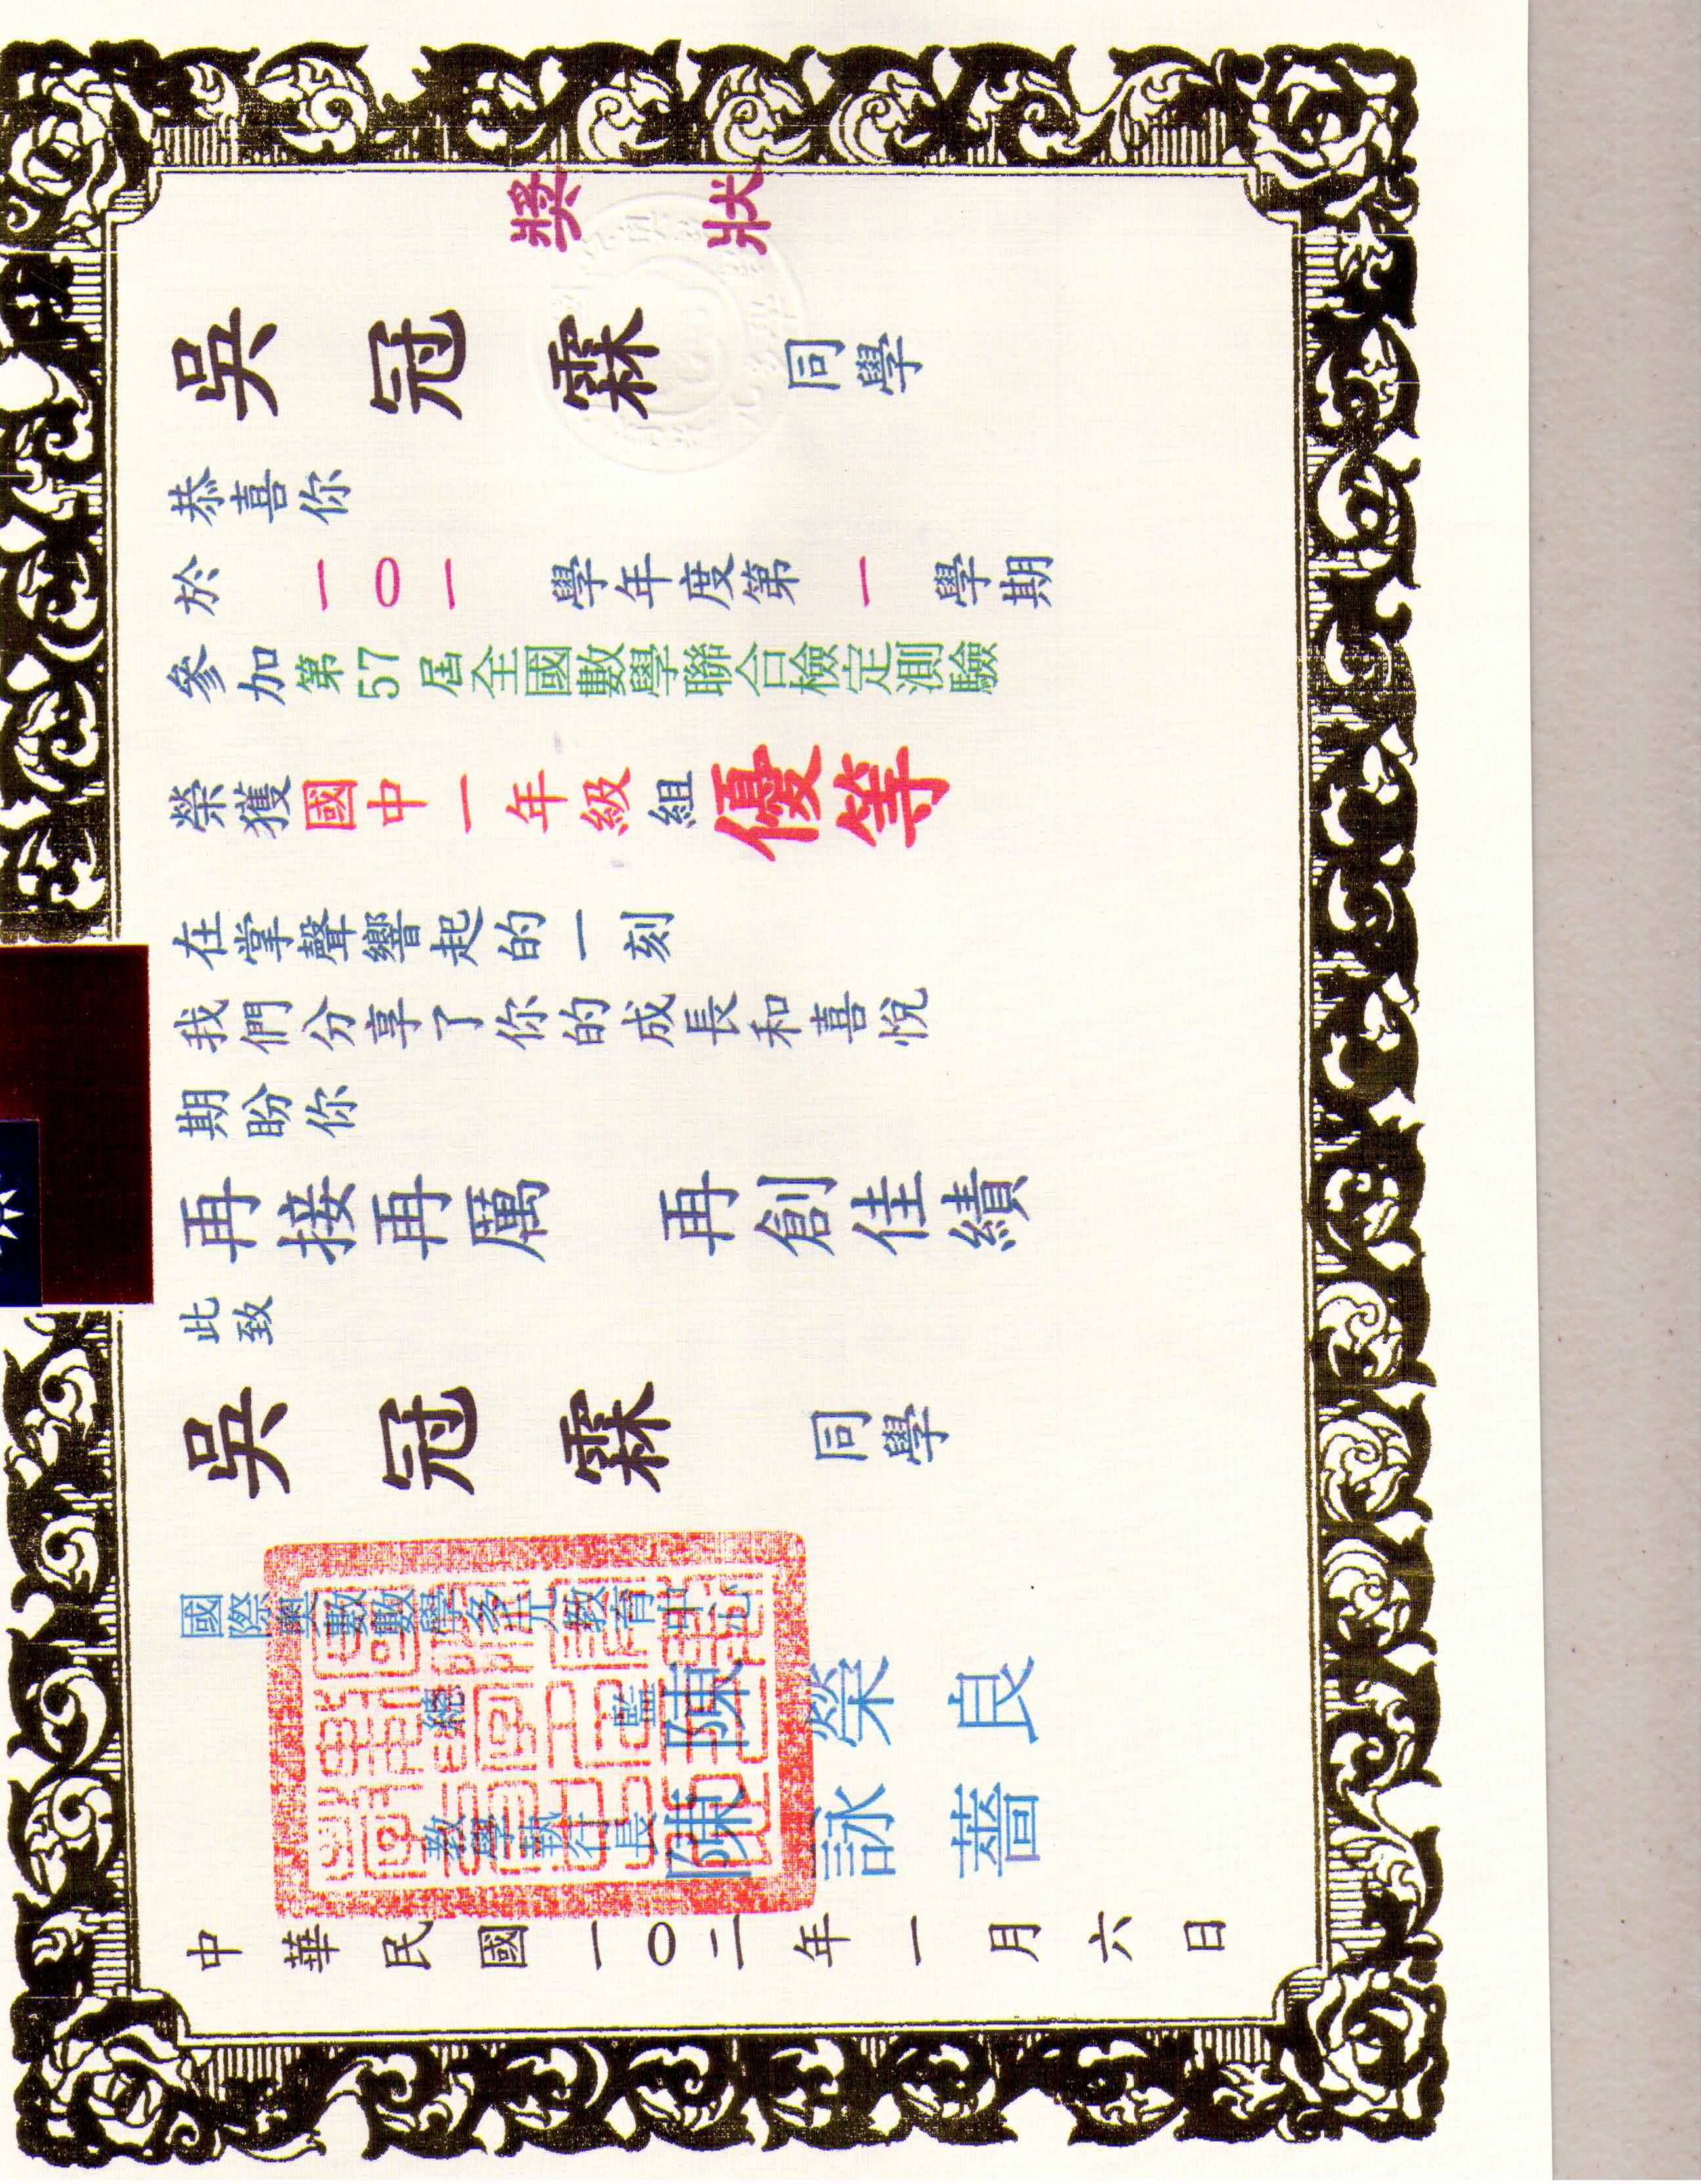 獎狀
吳冠霖 同學
恭喜你
於 一〇一 學年度第 一 學期
參加第57屆全國數學聯合檢定測驗
榮獲國中一年級組優等
在掌聲響起的一刻
我們分享了你的成長和喜悅
期盼你
再接再厲 再創佳績
此致
吳冠霖 同學
國際奧數數學多元教育中心
總監 陳榮良
教學執行長 陳詠薔
中華民國一〇二年一月六日